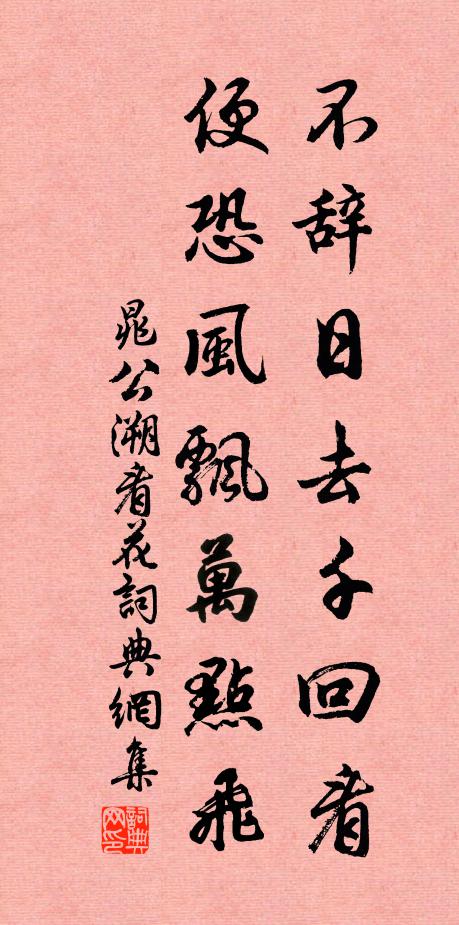 不辞日去千回看
便恐風飄萬點飛
晁公溯看花詞典網集
詞典网印